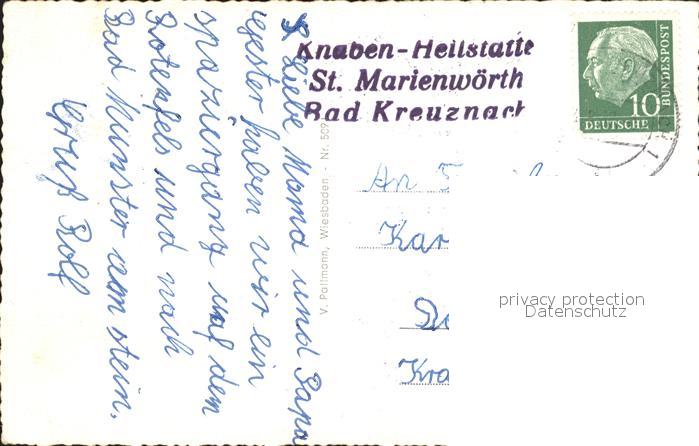 Knaben-Heilstätte
St. Marienwörth
Bad Kreuznach
10
DEUTSCHE
BUNDESPOST
Liebe Mama und Papa
gester haben wir ein
spaziergang auf dem
Rotenfels und nach
Bad Münster am stein.
Gruß Rolf
V. Pallmann, Wiesbaden - Nr. 509
An
Kar
Kra
privacy protection
Datenschutz